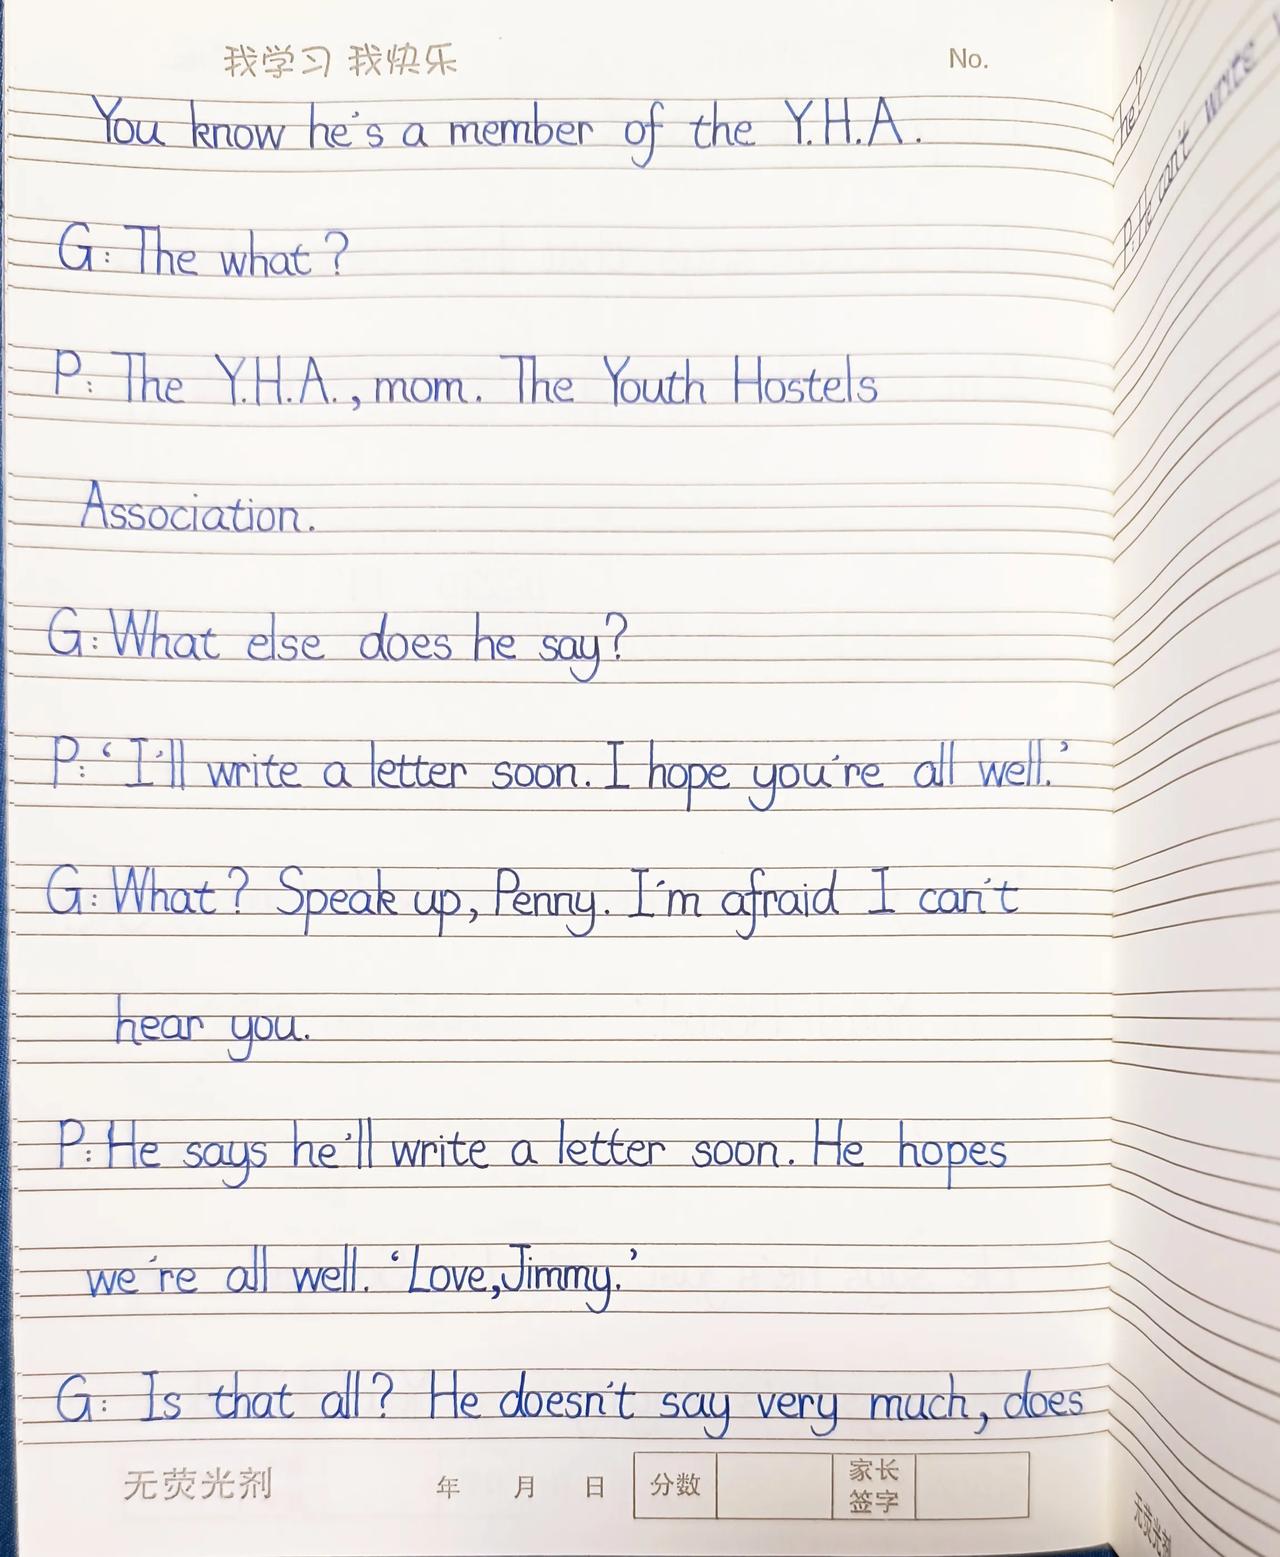 我学习 我快乐
No.
You know he's a member of the Y.H.A.
G: The what?
P: The Y.H.A., mom. The Youth Hostels
Association.
G: What else does he say?
P: ‘I'll write a letter soon. I hope you're all well.’
G: What? Speak up, Penny. I'm afraid I can't
hear you.
P: He says he'll write a letter soon. He hopes
we're all well. ‘Love, Jimmy.’
G: Is that all? He doesn't say very much, does
无荧光剂
年 月 日 分数 家长签字
he?
P: He can't write
无荧光剂